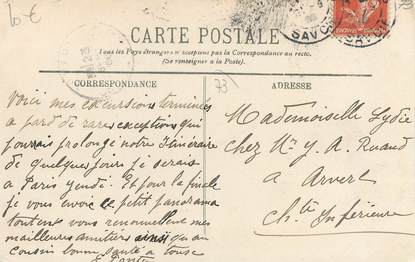 10 €
CARTE POSTALE
Tous les Pays étrangers n'acceptent pas la Correspondance au recto.
(Se renseigner à la Poste).
CORRESPONDANCE
ADRESSE
73
Voici mes excursions terminées
a part de rares exceptions qui
pourrais prolongé notre itinéraire
de quelques jours je serais
a Paris jeudi. Et pour la finale
je vous envoie ce petit panorama
tout en vous renouvellent mes
meilleures amitiers ainsi qu au
cousin bonne santé a tous
Mademoiselle Lydie
chez Mr J. A. Ruaud
a Arvert
Chte Inférieure
SAVOIE